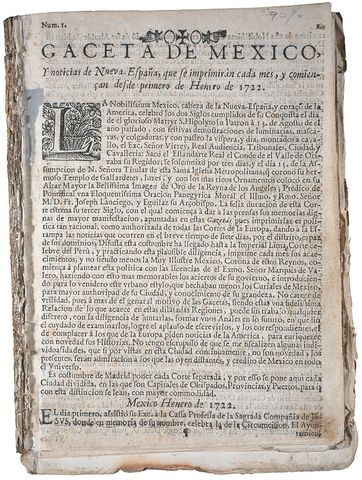 Num. 1.
GACETA DE MEXICO,
Y noticias de Nueva-España, que se imprimirán cada mes, y comien-
çan desde primero de Henero de 1722.
LA Nobilissima Mexico, cabeza de la Nueva-España, y coraçon de la
America, celebrò los dos Siglos cumplidos de su Conquista el dia
del glorioso Martyr S. Hipolyto su Patron à 13. de Agosto de el
año passado, con festivas demostraciones de luminarias, mascaras,
y colgaduras, y con passeo la vispera, y dia, montada â cavallo,
el Exc. Señor Virrey, Real Audiencia, Tribunales, Ciudad, y
Cavalleria: Sacò el Estandarte Real el Conde de el Valle de
su Regidor; se solemnizò por tres dias, y el dia 15. de la As-
sumpcion de N. Señora Titular de esta Santa Iglesia Metropolitana, se
Templo de Gallardetes, luzes, y con los mas ricos Ornamentos colocò en su
Altar Mayor la Bellissima Imagen de Oro de la Reyna de los Angeles; Predicò de
Pontifical vna Eloquentissima Oracion Panegyrica Moral el Illmo. y Rmo. Señor
M. D. Fr. Joseph Lanciego, y Eguilaz su Arçobispo. La feliz duracion de esta Cor-
te estrena su tercer Siglo, con el qual comiença à dar a las prensas sus memorias dig-
nas de mayor manifestacion, apuntadas en estas Gacetas, pues imprimirlas es poli-
tica tan racional, como authorizada de todas las Cortes de la Europa, dando à la Es-
tampa las noticias que ocurren en el breve tiempo de siete dias, por el distrito
de sus dominios; Difusa esta costumbre ha llegado hasta la Imperial Lima, Corte ce-
lebre del Perù, y practicando esta plausible diligencia, imprime cada mes sus acae-
cimientos; y no siendo menos la Muy Illustre Mexico, Corona de estos Reynos, co-
miença à plantear esta politica con las licencias de el Exmo. Señor Marques de Va-
lero, haziendo con esto mas memorables los aciertos de su govierno, è introducien-
do para lo venidero este vrbano estylo, que hechaban menos los Curiales de Mexico,
para mayor authoridad de su Ciudad, y conocimiento de su grandeza. No carece de
vtilidad, pues à mas de el general motivo de las Gacetas, siendo esta vna fidelissima
Relacion de lo que acaece en estas dilatadas Regiones, puede sin trabajo qualquier
discreto, con la diligencia de juntarlas, formar vnos Anales en lo futuro, en que sin
el cuydado de examinarlos, logre el aplauso de escrevirlos, y los correspondientes, el
de complacer à los que de la Europa piden noticias de la America, para enriquecer
con novedad sus Historias. No tengo escrupulo de que se me fiscalizen algunas indi-
vidualidades, que si por vistas en esta Ciudad continuamente, no son novedad à los
presentes, seràn admiracion à los que las oyen distantes, y credito de Mexico en todo
el Vniverso.
Es costumbre de Madrid poner cada Corte separada, y por esso se pone aqui cada
Ciudad dividida, en las que son Capitales de Obispados, Provincias, y Puertos, para q
con esta distincion se lean, con mayor commodidad.
Mexico Henero de 1722.
EL dia primero, assistiò su Exc. à la Cassa Professa de la Sagrada Compañia de JE-
SVS, donde en memoria de su nombre, celebra la de la Circuncision. El Ayun-
tamiento,